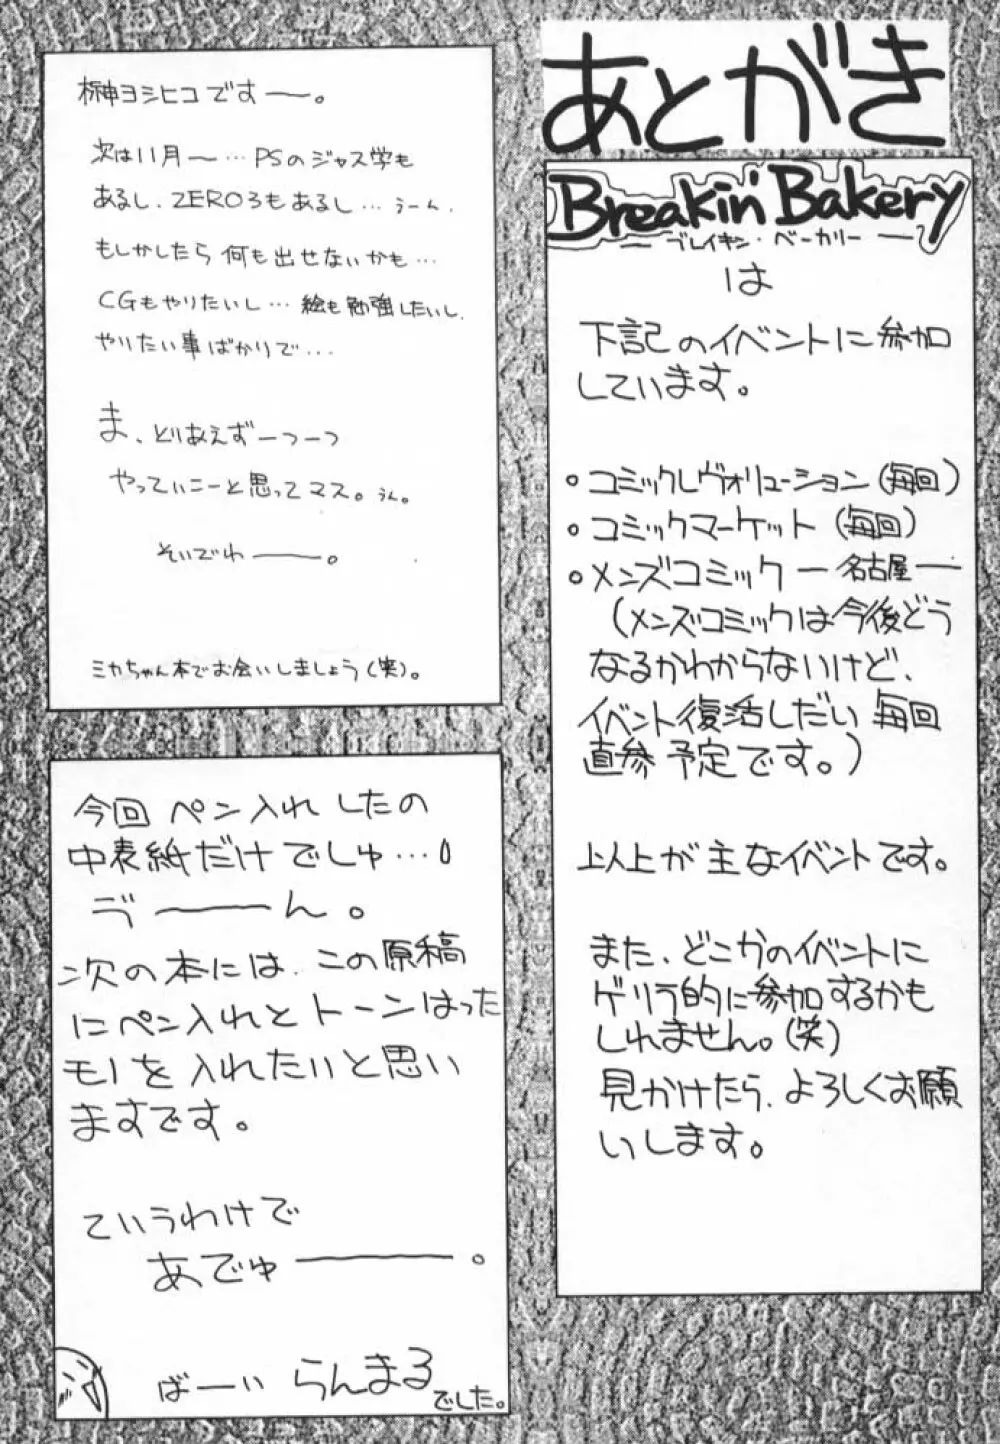 あとがき
Breakin' Bakery
ー ブレイキン・ベーカリー ー
は
下記のイベントに参加
しています。
○コミックレヴォリューション(毎回)
○コミックマーケット(毎回)
○メンズコミック ー 名古屋 ー
(メンズコミックは今後どう
なるかわからないけど、
イベント復活しだい毎回
直参予定です。)
以上が主なイベントです。
また、どこかのイベントに
ゲリラ的に参加するかも
しれません。(笑)
見かけたら、よろしくお願
いします。
榊ヨシヒコですー。
次は11月〜…PSのジャス学も
あるし、ZERO3もあるし…うーん、
もしかしたら何も出せないかも…
CGもやりたいし…絵も勉強したいし、
やりたい事ばかりで…
ま、とりあえずーつーつ
やっていこーと思ってマス。うん。
そいでわー。
ミカちゃん本でお会いしましょう(笑)。
今回ペン入れしたの
中表紙だけでしゅ…
ゔーーん。
次の本には、この原稿
にペン入れとトーンはった
モノを入れたいと思い
ますです。
ていうわけで
あでゅーー。
ばーい らんまる
でした。